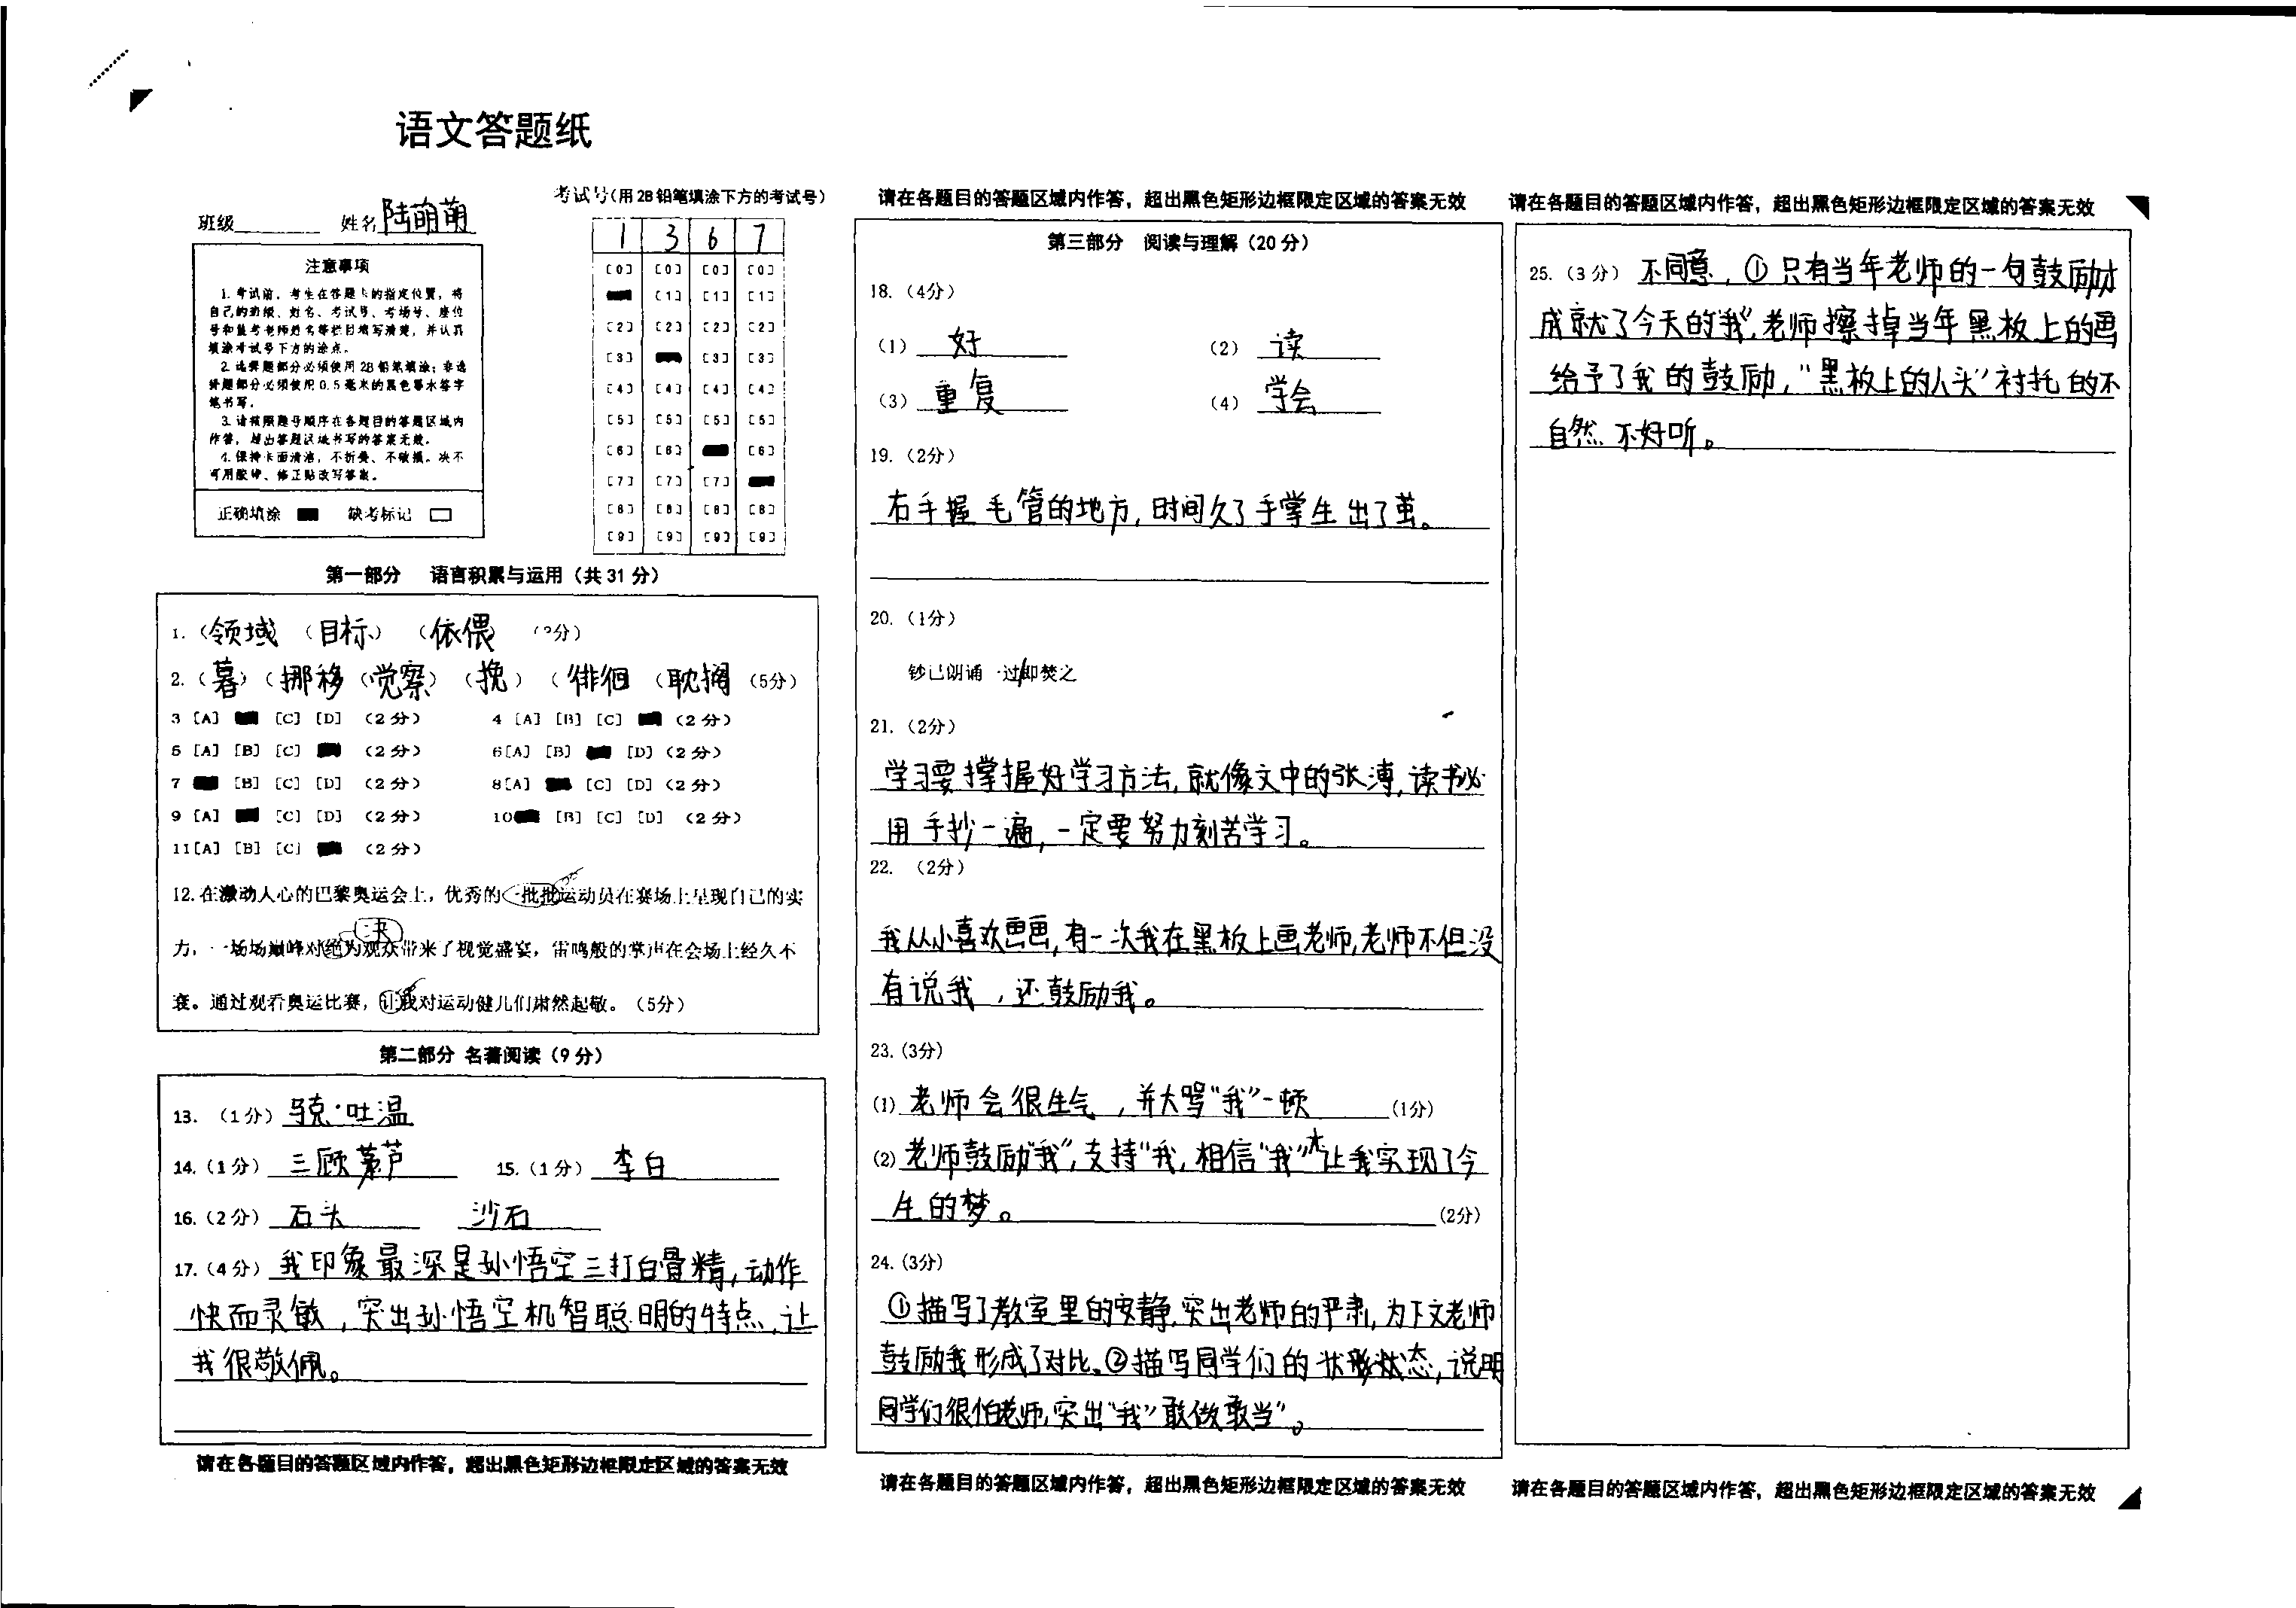 语文答题纸
班级 姓名 陆萌萌
考试号(用 2B 铅笔填涂下方的考试号)
1 3 6 7
[0] [0] [0] [0]
[1] [1] [1]
[2] [2] [2] [2]
[3] [3] [3]
[4] [4] [4] [4]
[5] [5] [5] [5]
[6] [6] [6]
[7] [7] [7]
[8] [8] [8] [8]
[9] [9] [9] [9]
注意事项
1. 考试前，考生在答题卡的指定位置，将
自己的班级、姓名、考试号、考场号、座位
号和监考老师姓名等栏目填写清楚，并认真
填涂考试号下方的涂点。
2. 选择题部分必须使用 2B 铅笔填涂；非选
择题部分必须使用 0.5 毫米的黑色墨水签字
笔书写。
3. 请按照题号顺序在各题目的答题区域内
作答，超出答题区域书写的答案无效。
4. 保持卡面清洁，不折叠、不破损。决不
可用胶带、修正贴改写答案。
正确填涂 缺考标记
第一部分 语言积累与运用（共 31 分）
1.（领域 （目标） （依偎 （3分）
2.（暮）（挪移（觉察）（挽）（徘徊 （耽搁（5分）
3 [A] [C] [D] （2 分） 4 [A] [B] [C] （2 分）
5 [A] [B] [C] （2 分） 6[A] [B] [D]（2 分）
7 [B] [C] [D] （2 分） 8[A] [C] [D]（2 分）
9 [A] [C] [D] （2 分） 10 [B] [C] [D] （2 分）
11[A] [B] [C] （2 分）
12. 在激动人心的巴黎奥运会上，优秀的一批批运动员在赛场上呈现自己的实
决
力，一场场巅峰对绝为观众带来了视觉盛宴，雷鸣般的掌声在会场上经久不
衰。通过观看奥运比赛，让我对运动健儿们肃然起敬。（5分）
第二部分 名著阅读（9 分）
13. （1 分）马克·吐温
14.（1 分） 三顾茅芦 15.（1 分） 李白
16.（2 分） 石头 沙石
17.（4 分）我印象最深是孙悟空三打白骨精，动作
快而灵敏，突出孙悟空机智聪明的特点，让
我很敬佩。
请在各题目的答题区域内作答，超出黑色矩形边框限定区域的答案无效
请在各题目的答题区域内作答，超出黑色矩形边框限定区域的答案无效
第三部分 阅读与理解（20 分）
18.（4分）
（1） 好 （2） 读
（3） 重复 （4） 学会
19.（2分）
右手握毛管的地方，时间久了手掌生出了茧。
20.（1分）
钞已朗诵一过/即焚之
21.（2分）
学习要掌握好学习方法，就像文中的张溥，读书必
用手抄一遍，一定要努力刻苦学习。
22. （2分）
我从小喜欢画画，有一次我在黑板上画老师，老师不但没
有说我，还鼓励我。
23.（3分）
(1) 老师会很生气，并大骂“我”一顿 （1分）
(2) 老师鼓励“我”，支持“我，相信“我”才让我实现了今
生的梦。 （2分）
24.（3分）
①描写了教室里的安静，突出老师的严肃，为下文老师
鼓励我形成了对比。②描写同学们的状态，说明
同学们很怕老师，突出“我”敢做敢当”。
请在各题目的答题区域内作答，超出黑色矩形边框限定区域的答案无效
请在各题目的答题区域内作答，超出黑色矩形边框限定区域的答案无效
25.（3 分） 不同意，①只有当年老师的一句鼓励才
成就了今天的“我”，老师擦掉当年黑板上的画
给予了我的鼓励，“黑板上的人头”衬托的不
自然不好听。
请在各题目的答题区域内作答，超出黑色矩形边框限定区域的答案无效